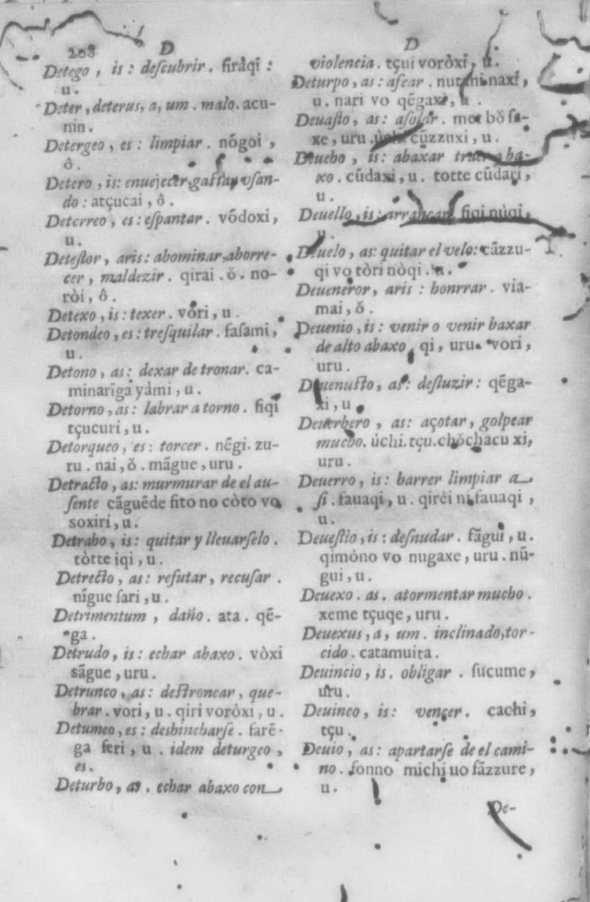 208 D
Detego, is: descubrir. firaqi:
u.
Deter, deterus, a, um. malo. acu-
nin.
Detergeo, es: limpiar. nógoi,
ô.
Detero, is: enuejecer, gastar, vsan-
do: atçucai, ô.
Deterreo, es: espantar. vôdoxi,
u.
Detestor, aris: abominar, aborre-
cer, maldezir. qirai. ǒ. no-
ròi, ô.
Detexo, is: texer. vòri, u.
Detondeo, es: tresquilar. fasami,
u.
Detono, as: dexar de tronar. ca-
minariga yàmi, u.
Detorno, as: labrar a torno. fiqi
tçucuri, u.
Detorqueo, es: torcer. nẽgi. zu-
ru. nai, ǒ. mãgue, uru.
Detracto, as: murmurar de el au-
sente cãguẽde fito no còto vo
soxiri, u.
Detraho, is: quitar y lleuarselo.
tòtte iqi, u.
Detrecto, as: refutar, recusar.
nĩgue sari, u.
Detrimentum, daño. ata. qẽ-
ga.
Detrudo, is: echar abaxo. vòxi
sãgue, uru.
Detrunco, as: destroncar, que-
brar. vori, u. qiri voròxi, u.
Detumeo, es: deshincharse. farẽ-
ga feri, u. idem deturgeo,
es.
Deturbo, as. echar abaxo con
D
violencia. tçui voròxi, u.
Deturpo, as: afear.
u. nari vo qẽgaxi, u.
Deuasto, as: asolar.
xe, uru. cũzzuxi, u.
Deueho, is: abaxar traer aba-
xo. cũdaxi, u. totte cũdari,
u.
Deuello, is: arrancar. fiqi nùqi,
u.
Deuelo, as: quitar el velo: cãzzu-
qi vo tòri nòqi. u.
Deueneror, aris: honrrar. via-
mai, ǒ.
Deuenio, is: venir o venir baxar
de alto abaxo, qi, uru. vori,
uru.
Deuenusto, as: desluzir: qẽga-
xi, u.
Deuerbero, as: açotar, golpear
mucho. ùchi. tçu. chǒchacu xi,
uru.
Deuerro, is: barrer limpiar a
si. fauaqi, u. qirèi ni fauaqi,
u.
Deuestio, is: desnudar. fãgui, u.
qimóno vo nugaxe, uru. nũ-
gui, u.
Deuexo. as. atormentar mucho.
xeme tçuqe, uru.
Deuexus, a, um. inclinado, tor-
cido. catamuita.
Deuincio, is. obligar. sucume,
uru.
Deuinco, is: vençer. cachi,
tçu.
Deuio, as: apartarse de el cami-
no. sonno michi uo fãzzure,
u.
De-